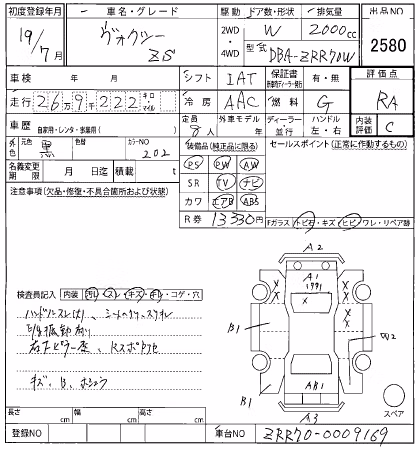 初度登録年月 車名・グレード 駆動 ドア数・形状 排気量 出品NO
19/7月 ヴォクシー ZS 2WD・4WD W 2000cc 2580
型式 DBA-ZRR70W
車検 年 月 シフト IAT 保証書 有・無 評価点
走行 26万9千222キロ・マイル 冷房 AAC 燃料 G RA
車歴 自家用・レンタ・事業用( ) 定員 8人 外車モデル 年 ディーラー・並行 ハンドル 左・右 内装評価 C
外色 元色 黒 色替 カラーNO 202 装備品(純正品に限る) セールスポイント(正常に作動するもの)
名義変更期限 月 日迄 積載 t PS PW AW
SR TV ナビ
注意事項(欠品・修復・不具合箇所および状態) カワ エアB ABS
R券 13330円 Fガラス トビ石・キズ・ヒビ・ワレ・リペア跡
A2
A1
1991
検査員記入 内装 汚レ・スレ・キズ・切レ・コゲ・穴
ハンドルスレ
B1
W2
キズ、B、
AB1
B1
A3
スペア
長さ cm 幅 cm 高さ cm
登録NO 車台NO ZRR70-0009169